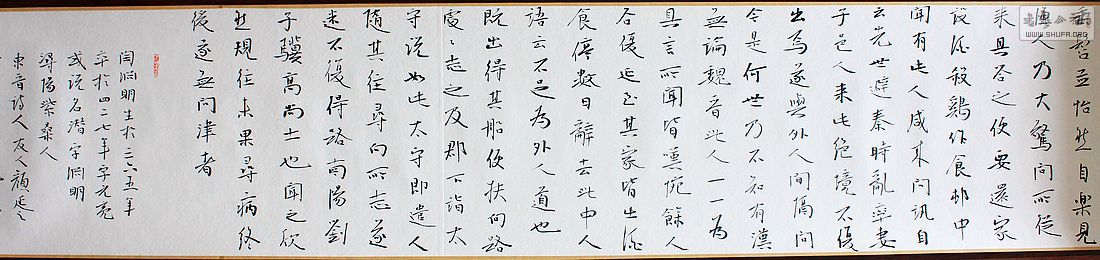 垂髫並怡然自樂見
漁人乃大驚問所從
來具答之便要還家
設酒殺鷄作食邨中
聞有此人咸來問訊自
云先世避秦時亂率妻
子邑人來此絕境不復
出焉遂與外人間隔問
今是何世乃不知有漢
無論魏晉此人一一為
具言所聞皆嘆惋餘人
各復延至其家皆出酒
食停數日辭去此中人
語云不足為外人道也
既出得其船便扶向路
處〻志之及郡下詣太
守說如此太守即遣人
隨其往尋向所志遂
迷不復得路南陽劉
子驥高尚士也聞之欣
然規往未果尋病終
後遂無問津者
陶淵明生於三六五年
卒於四二七年字元亮
或說名潛字淵明
潯陽柴桑人
東晉詩人友人顏延之
WWW.SHUFA.ORG